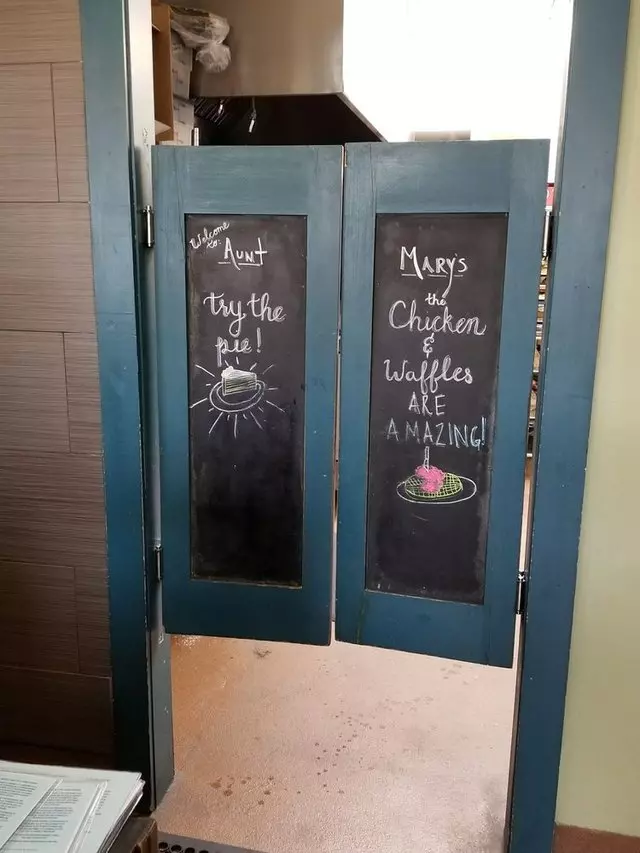 Welcome
to:
Aunt
try the
pie!
Mary's
the
Chicken
&
Waffles
ARE
AMAZING!